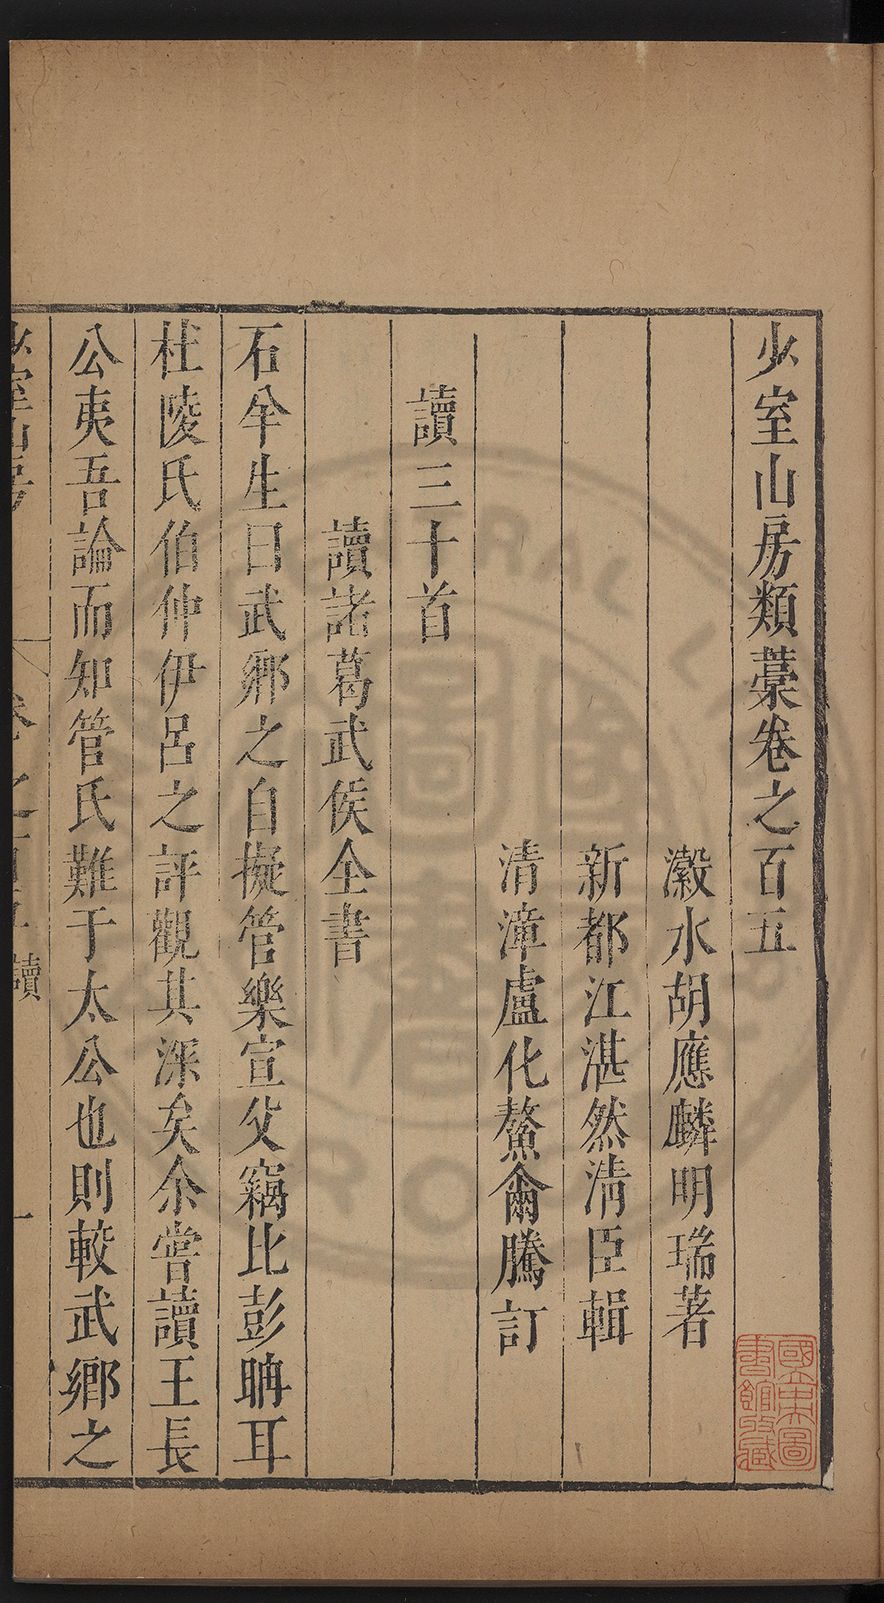 少室山房類藁卷之百五
瀫水胡應麟明瑞著
新都江湛然清臣輯
清漳盧化鰲爾騰訂
讀三十首
讀諸葛武侯全書
石羊生曰武鄉之自擬管樂宣父竊比彭聃耳
杜陵氏伯仲伊呂之評觀其深矣余嘗讀王長
公夷吾論而知管氏難于太公也則較武鄉之
少室山房
卷之百五
讀
一
國立中央圖
書館收藏